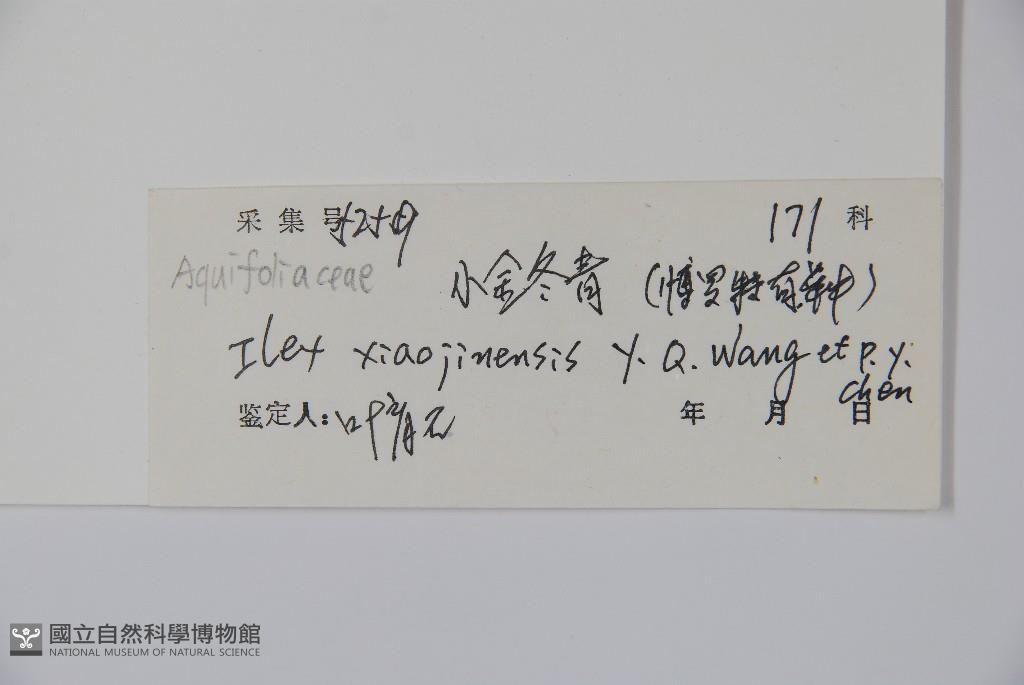 采集号 171 科
Aquifoliaceae 小金冬青 (博罗特有种)
Ilex xiaojinensis Y. Q. Wang et P. Y. Chen
鉴定人: 叶育石 年 月 日
國立自然科學博物館
NATIONAL MUSEUM OF NATURAL SCIENCE